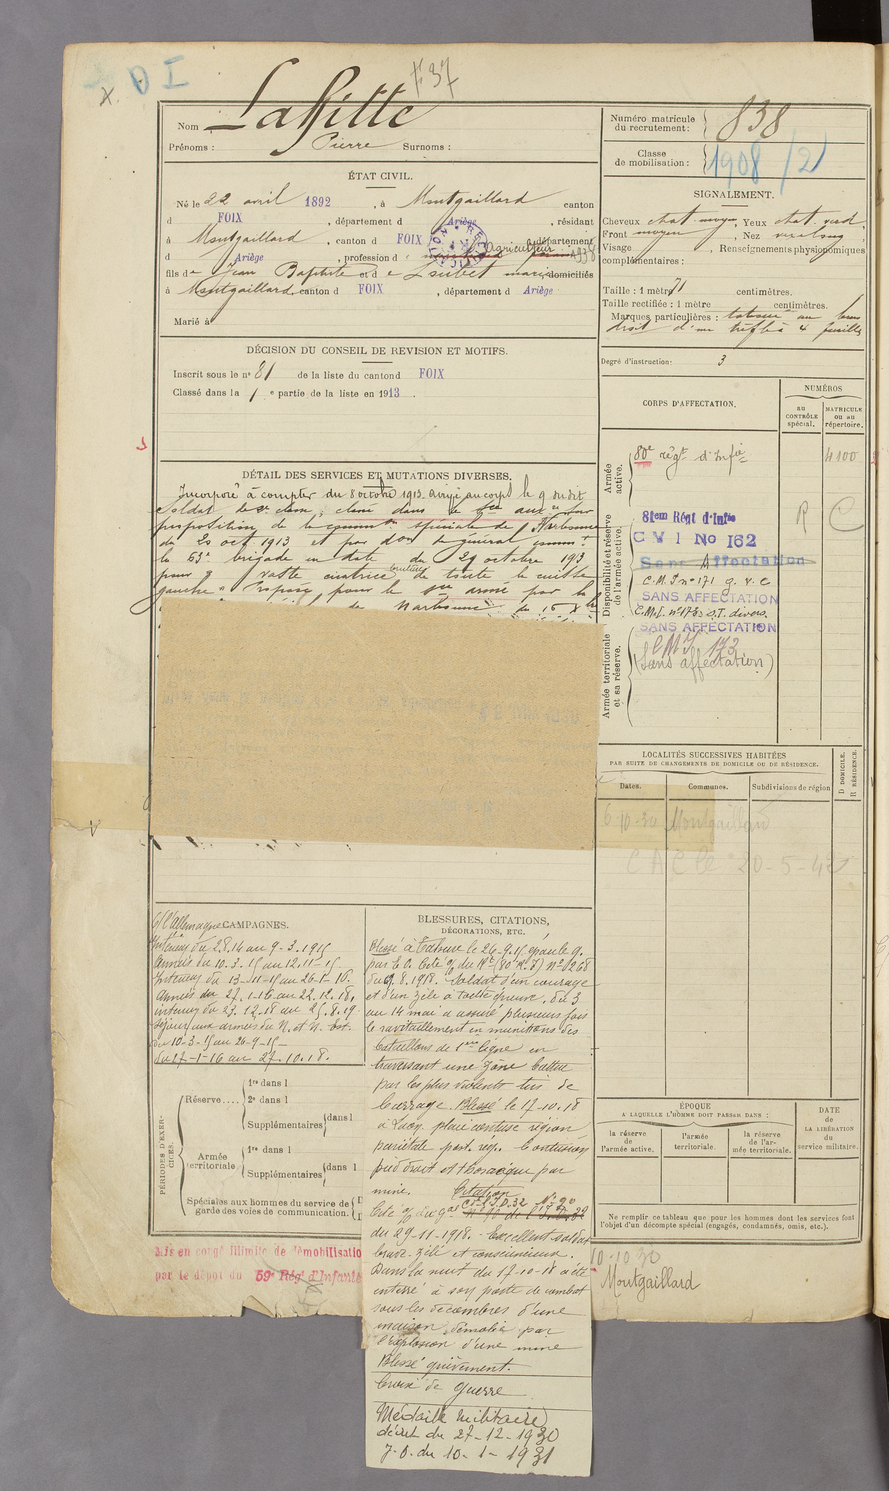 DI
X.
f°37
Nom Laffitte
Prénoms : Pierre Surnoms :
Numéro matricule du recrutement : 838
Classe de mobilisation : 1908/2
ÉTAT CIVIL.
Né le 22 avril 1892, à Montgaillard canton
d FOIX, département d Ariège, résidant
à Montgaillard, canton d FOIX, département
d Ariège, profession d agriculteur
fils de Jean Baptiste et d e Loubet marie domiciliés
à Montgaillard canton d FOIX, département d Ariège.
Marié à
SIGNALEMENT.
Cheveux chat. moyen, Yeux chat. verd.
Front moyen, Nez
Visage , Renseignements physionomiques
complémentaires :
Taille : 1 mètre 71 centimètres.
Taille rectifiée : 1 mètre centimètres.
Marques particulières : tatoué au bras
droit d'un trèfle à 4 feuilles
Degré d'instruction : 3
DÉCISION DU CONSEIL DE REVISION ET MOTIFS.
Inscrit sous le n° 81 de la liste du canton d FOIX
Classé dans la 1e partie de la liste en 1913.
DÉTAIL DES SERVICES ET MUTATIONS DIVERSES.
Incorporé à compter du 8 octobre 1913. arrivé au corps le 9 dudit
Soldat de 2e classe, classé dans le sce aux re sur
proposition de la common spéciale de Narbonne
du 20 oct 1913 et par don du général commt
la 63e brigade en date du 29 octobre 1913
pour " vaste cicatrice de toute la cuisse
gauche "
de Narbonne du 16
CORPS D'AFFECTATION.
NUMÉROS
AU CONTRÔLE spécial.
MATRICULE ou au répertoire.
Armée active.
80e régt d'Infie
4100
Disponibilité et réserve de l'armée active.
81em Régt d'Infie
R C
C V I No 162
Sans Affectation
C.M.I n°171 g.v.c
SANS AFFECTATION
C.M.I. n°173 S.T. divers.
SANS AFFECTATION
Armée territoriale et sa réserve.
CMI 173
(Sans affectation)
LOCALITÉS SUCCESSIVES HABITÉES
PAR SUITE DE CHANGEMENTS DE DOMICILE OU DE RÉSIDENCE.
Dates. Communes. Subdivisions de région
D DOMICILE.
R RÉSIDENCE.
6-10-30 Montgaillard
20-5-42
CAMPAGNES.
C/ l'Allemagne
Intérieur du 2.8.14 au 9-3.1915
Armées du 10.3.15 au 12.11-15
Intérieur du 13-11-15 au 26-1-16.
armées du 27.1-16 au 22.12.18.
intérieur du 23.12.18 au 25.8.19
Séjour aux armées du N. et N. Est.
du 10-3-15 au 26-9-15
du 27-1-16 au 27.10.18.
BLESSURES, CITATIONS,
DÉCORATIONS, ETC.
Blessé à Tahure le 26-9.15 épaule g.
par E.O. Cité o/ du Rt (80e R.I) n° 268
du 9.8.1918. Soldat d'un courage
et d'un zèle à toute épreuve, du 3
au 14 mai a assuré plusieurs fois
le ravitaillement en munitions des
bataillons de 1ère ligne en
traversant une zone battue
par les plus violents tirs de
barrage. Blessé le 17-10.18
à plaie contuse région
pariétale post. rég. Contusion
pied droit et thoracique par
mine. Citation
Cité o/ du gal Ct I.D.32 N° 90
du 29-11-1918. - Excellent soldat
brave zélé et consciencieux.
Dans la nuit du 17-10-18 a été
enterré à son poste de combat
sous les décombres d'une
maison démolie par
l'explosion d'une mine
Blessé grièvement.
Croix de guerre
Médaille Militaire
décret du 27-12-1930
J.O. du 10-1-1931
PÉRIODES D'EXERCICES.
Réserve....
1re dans l
2e dans l
Supplémentaires dans l
Armée territoriale.
1re dans l
Supplémentaires dans l
Spéciales aux hommes du service de garde des voies de communication.
ÉPOQUE
A LAQUELLE L'HOMME DOIT PASSER DANS :
la réserve de l'armée active.
l'armée territoriale.
la réserve de l'armée territoriale.
DATE de LA LIBÉRATION du service militaire.
Ne remplir ce tableau que pour les hommes dont les services font
l'objet d'un décompte spécial (engagés, condamnés, omis, etc.).
Mis en congé illimité de démobilisation
par le dépôt du 59e Régt d'Infanterie
10.10 30
Montgaillard